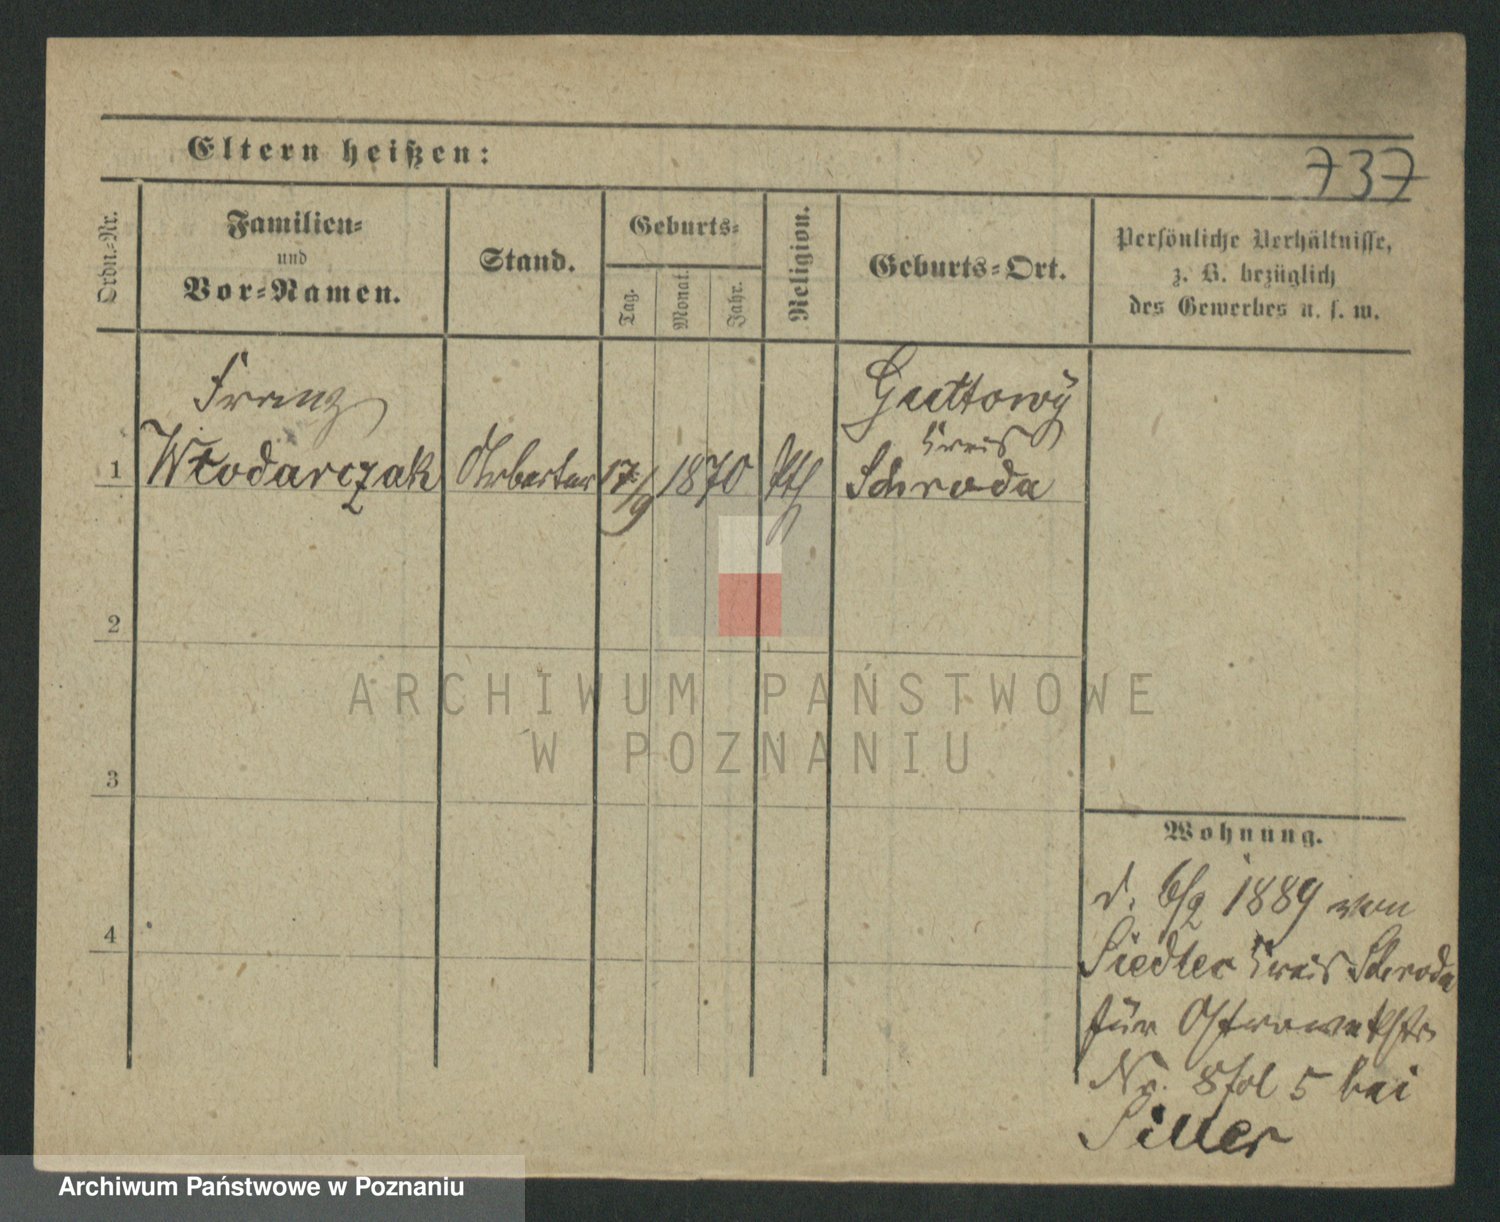 Eltern heißen:
737
Ordn.-Nr.
Familien-
und
Vor-Namen.
Stand.
Geburts-
Tag.
Monat.
Jahr.
Religion.
Geburts-Ort.
Persönliche Verhältnisse,
z. B. bezüglich
des Gewerbes u. s. w.
1
Franz
Włodarczak
Arbeiter
17/9
1870
kth
Guttowÿ
Kreis
Schroda
2
3
4
ARCHIWUM PAŃSTWOWE
W POZNANIU
Wohnung.
d. 6/2 1889 von
Siedlec Kreis Schroda
für Ostrowekstr
Nr. 8 fol 5 bei
Siller
Archiwum Państwowe w Poznaniu